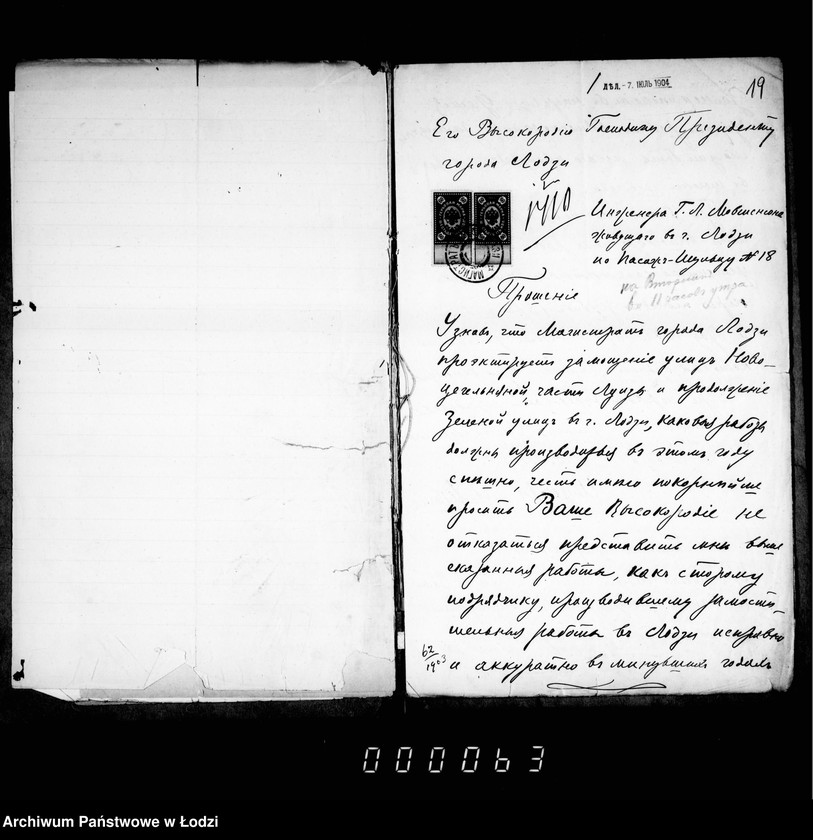 1 ДѢЛ. - 7. ІЮЛЬ 1904
19
Его Высокородію Господину Президенту
города Лодзи
Инженера Г. Л.
живущаго въ г. Лодзи
по Пасажъ-Шульцу № 18
на Вторникъ
въ 11 часовъ утра
МАГИСТРАТ
Прошеніе
Узнавъ, что Магистратъ города Лодзи
проэктируетъ замощеніе улицъ Ново-
цегельняной, часть Луизы и продолженіе
Зеленой улицъ въ г. Лодзи, каковыя работы
должны производиться въ этомъ году
спѣшно, честь имѣю покорнѣйше
просить Ваше Высокородіе не
отказаться представить мнѣ выше
сказанныя работы, какъ старому
подрядчику, производившему замости-
тельныя работы въ Лодзи исправно
и аккуратно въ минувшихъ годахъ
62
1903
000063
Archiwum Państwowe w Łodzi